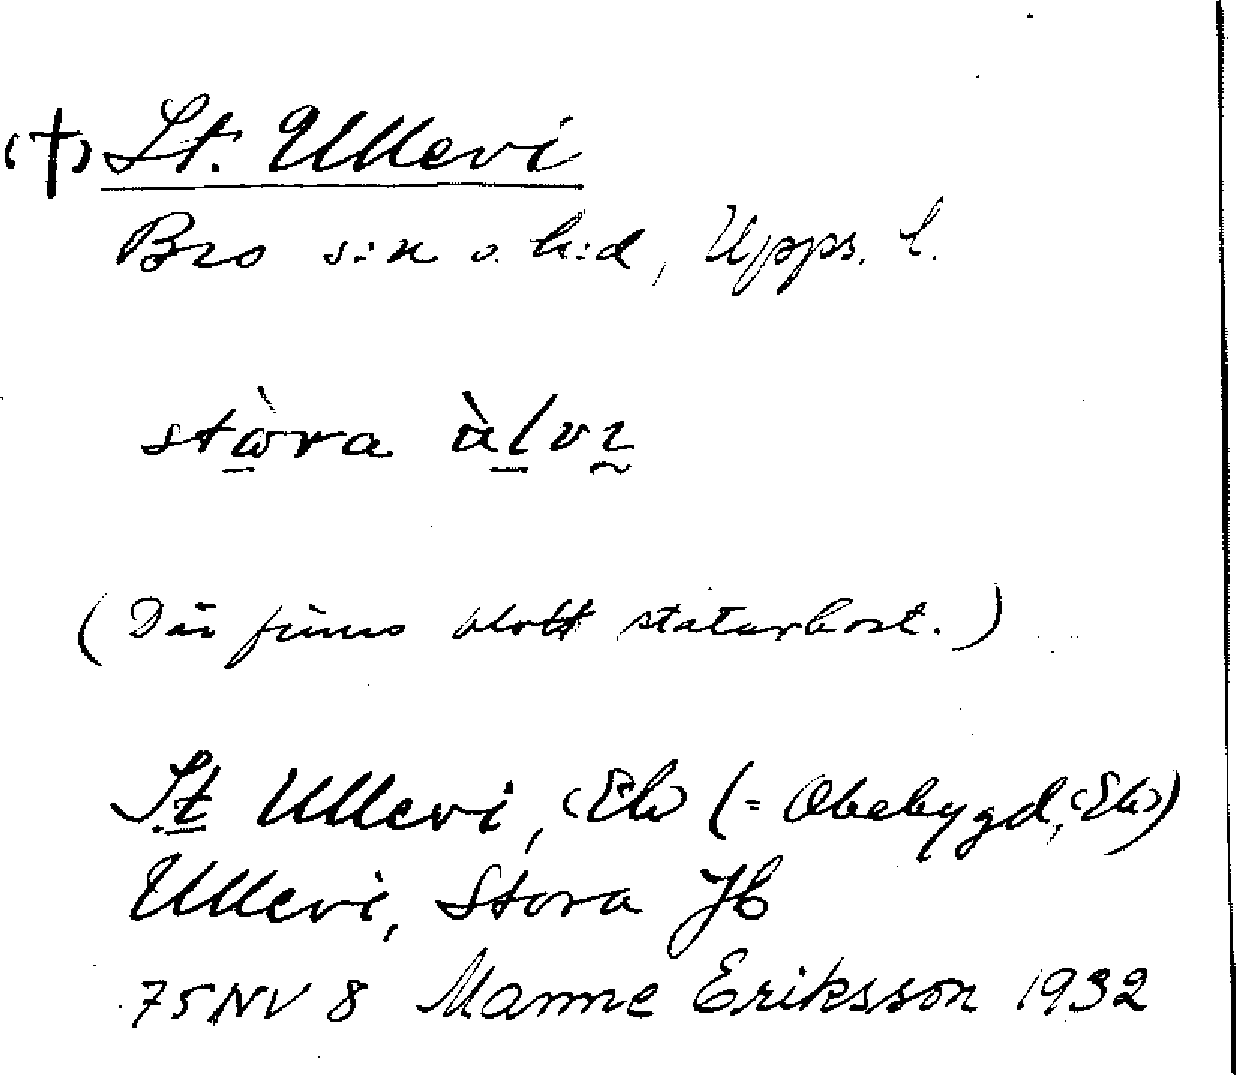 (†) St. Ullevi
Bro s:n o. h:d, Upps. l.
stɷ̀ra àlvɩ
(Där finns blott statarbost.)
St Ullevi, Ek (= Obebygd, Ek)
Ullevi, Stora Jb
75NV 8 Manne Eriksson 1932